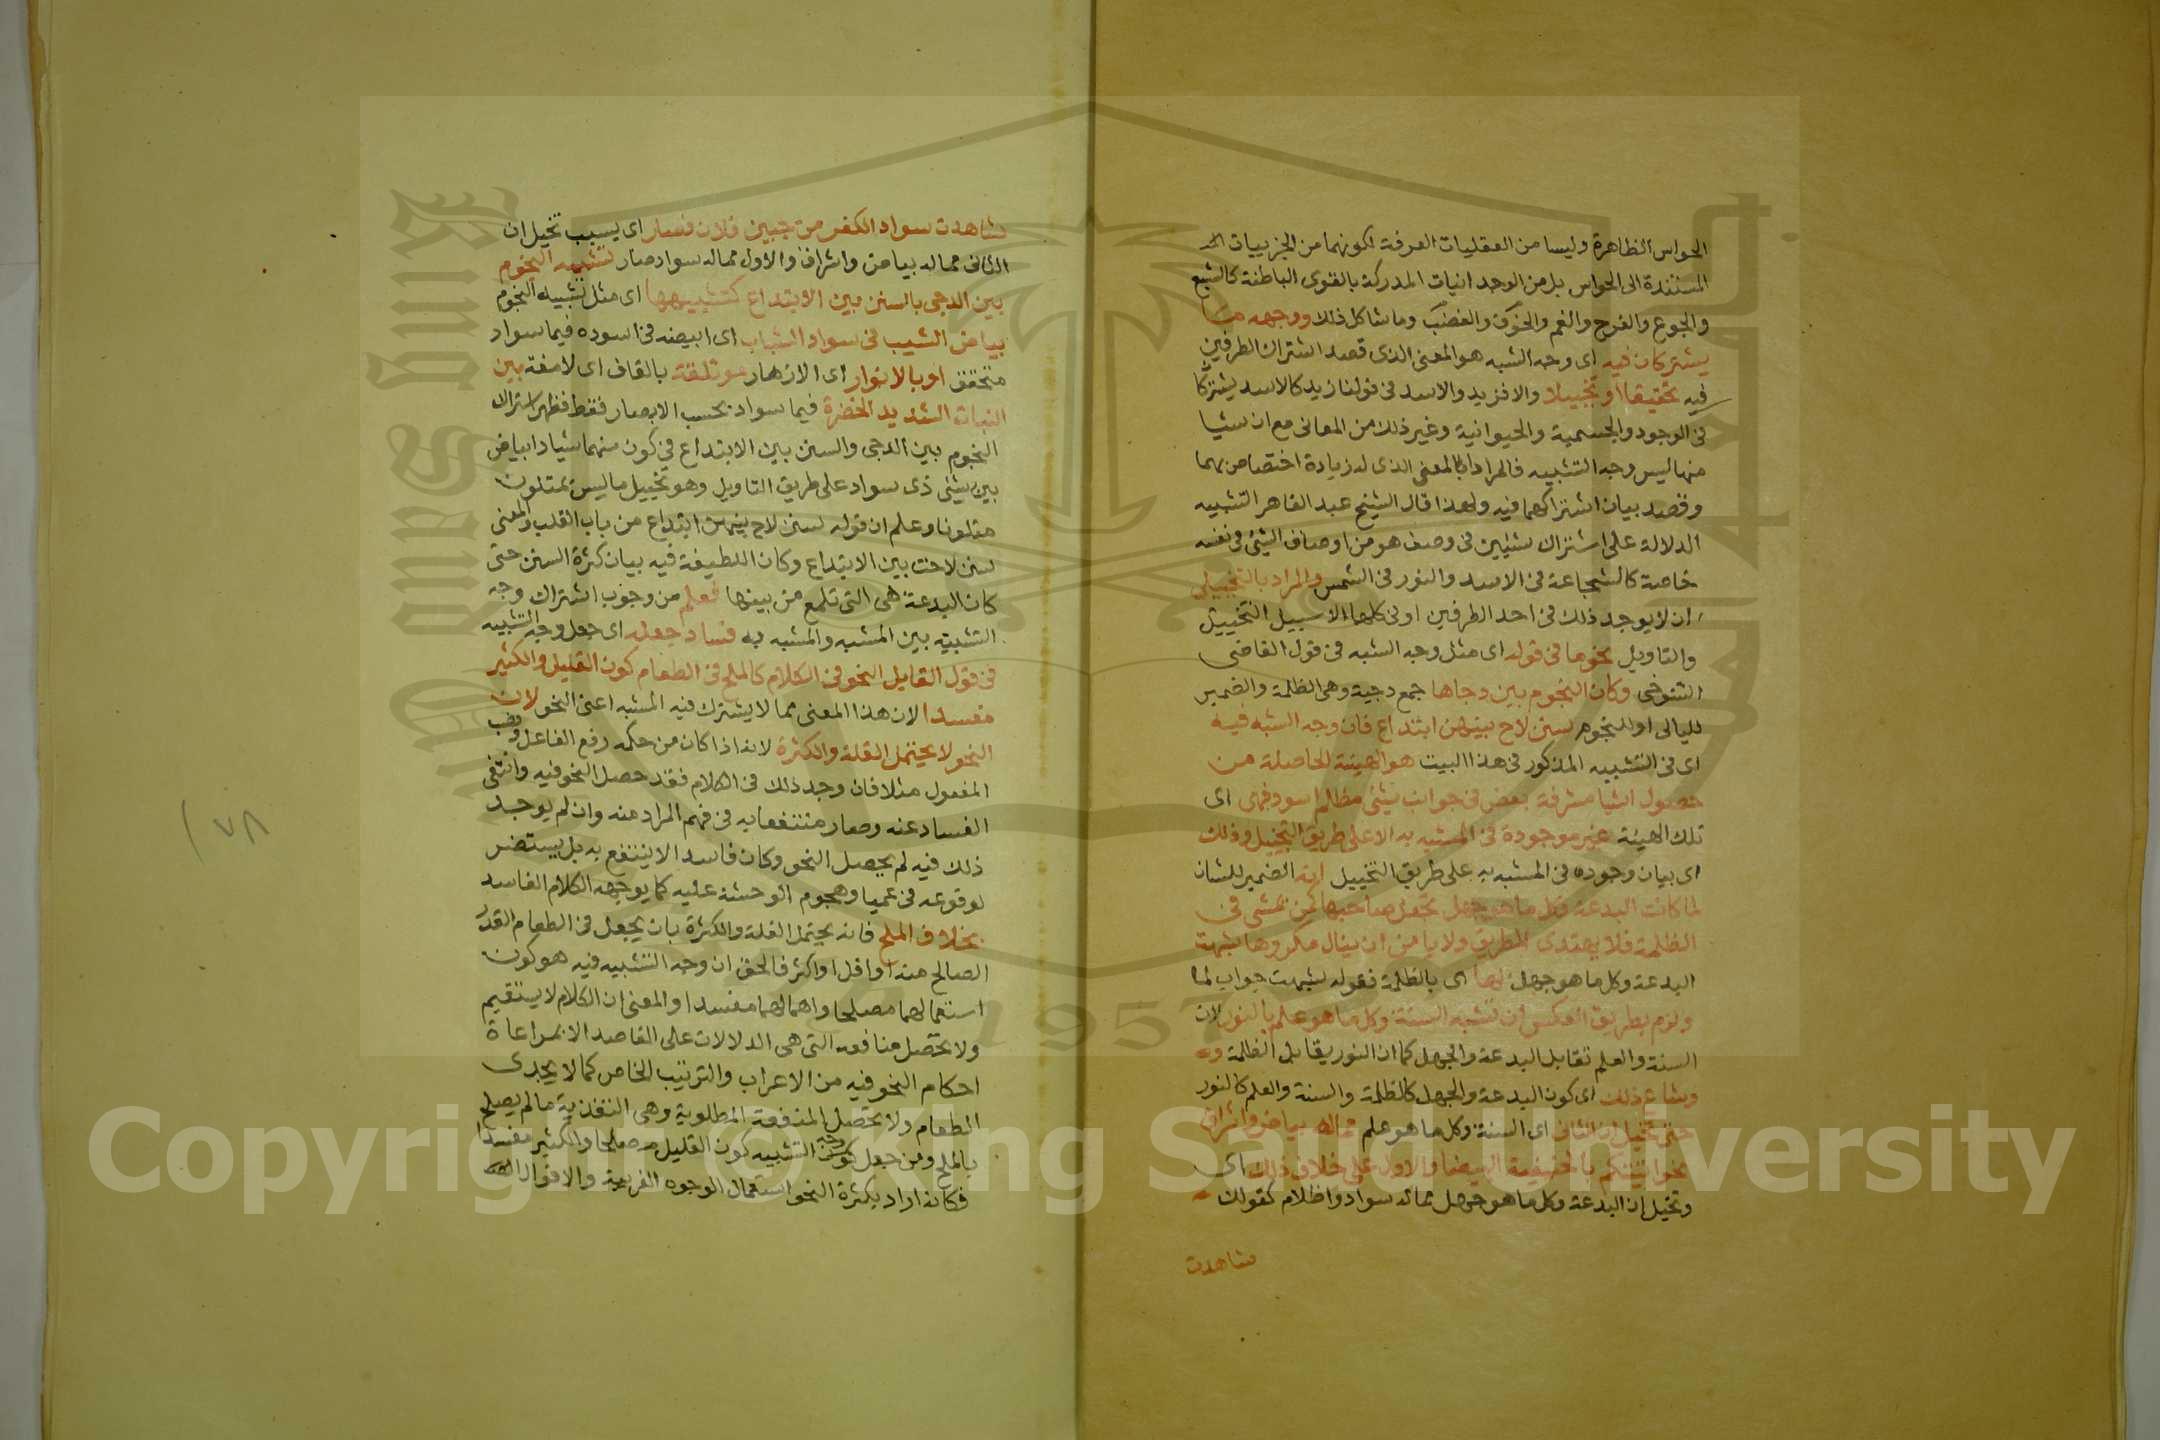 الحواس الظاهرة وليسا من العقليات الصرفة لكونهما من الجزييات
المستندة الى الحواس بل من الوجدانيات المدركة بالقوى الباطنة كالشبع
والجوع والفرح والغم والخوف والغضب وما شاكل ذلك ووجهه ما
يشتركان فيه اى وجه الشبه هو المعنى الذى قصد اشتراك الطرفين
فيه تحقيقا او تخييلا والا فزيد والاسد فى قولنا زيد كالاسد يشتركا
فى الوجود والجسمية والحيوانية وغير ذلك من المعانى مع ان شيا
منها ليس وجه التشبيه فالمراد بالمعنى الذى له زيادة اختصاص بهما
وقصد بيان اشتراكهما فيه ولهذا قال الشيخ عبد القاهر التشبيه
الدلالة على اشتراك شيئين فى وصف هو من اوصاف الشئ فى نفسه
خاصة كالشجاعة فى الاسد والنور فى الشمس والمراد بالتخييلى
ان لا يوجد ذلك فى احد الطرفين او فى كلهما الا سبيل التخييل
والتاويل نحو ما فى قوله اى مثل وجه الشبه فى قول القاضى
التنوخى وكان النجوم بين دجاها جمع دجية وهى الظلمة والضمير
لليالى او للنجوم سنن لاح بينهن ابتداع فان وجه الشبه فيه
اى فى التشبيه المذكور فى هذا البيت هو الهيئة الحاصلة من
حصول اشيا مشرقة بعض فى جوانب شئى مظلم اسود فهى اى
تلك الهيئة غير موجودة فى المشبه به الا على طريق التخييل وذلك
اى بيان وجوده فى المشبه به على طريق التخييل انه الضمير للشان
لما كانت البدعة وكل ما هو جهل تجعل صاحبها كمن يمشى فى
الظلمة فلا يهتدى الطريق ولا يامن ان ينال مكروها شبهت
البدعة وكل ما هو جهل بها اى بالظلمة فقوله شبهت جواب لما
ولزم بطريق العكس ان تشبه السنة وكل ما هو علم بالنور لان
السنة والعلم تقابل البدعة والجهل كما ان النور يقابل الظلمة
وشاع ذلك اى كون البدعة والجهل كالظلمة والسنة والعلم كالنور
حتى تخيل ان الثانى اى السنة وكل ما هو علم مما له بياض واشراق
نحو اتيتكم بالحنيفية البيضا والاول على خلاف ذلك اى
وتخيل ان البدعة وكل ما هو جهل مما له سواد واظلام كقولك
شاهدت
شاهدت سواد الكفر من جبين فلان فصار اى بسبب تخيل ان
الثانى مما له بياض واشراق والاول مما له سواد صار تشبيه النجوم
بين الدجى بالسنن بين الابتداع كتشبيهها اى مثل تشبيه النجوم
بياض الشيب فى سواد الشباب اى ابيضه فى اسوده فيما سواد
متحقق او بالانوار اى الازهار موتلقة بالقاف اى لامعة بين
النبات الشديد الخضرة فيما سواد بحسب الابصار فقط فظهر اشتراك
النجوم بين الدجى والسنن بين الابتداع فى كون منهما شيا ذا بياض
بين شئى ذى سواد على طريق التاويل وهو تخييل ما ليس بمتلون
متلونا وعلم ان قوله سنن لاح بينهن ابتداع من باب القلب والمعنى
سنن لاحت بين الابتداع وكان اللطيفة فيه بيان كثرة السنن حتى
كان البدعة هى التى تلمع من بينها فعلم من وجوب اشتراك وجه
التشبيه بين المشبه والمشبه به فساد جعله اى جعل وجه التشبيه
فى قول القايل النحو فى الكلام كالملح فى الطعام كون القليل والكثير
مفسدا لان هذا المعنى مما لا يشترك فيه المشبه اعنى النحو لان
النحو لا يحتمل القلة والكثرة لانه اذا كان من حكمه رفع الفاعل ونصب
المفعول مثلا فان وجد ذلك فى الكلام فقد حصل النحو فيه وانتفى
الفساد عنه وصار منتفعا به فى فهم المراد منه وان لم يوجد
ذلك فيه لم يحصل النحو وكان فاسدا لا ينتفع به بل يستضر
لوقوعه فى عميا وهجوم الوحشة عليه كما يوجبه الكلام الفاسد
بخلاف الملح فانه يحتمل القلة والكثرة بان يجعل فى الطعام القدر
الصالح منه او اقل او اكثر فالحق ان وجه التشبيه فيه هو كون
استعمالهما مصلحا واهمالهما مفسدا والمعنى ان الكلام لا يستقيم
ولا تحصل منافعه التى هى الدلالات على القاصد الا بمراعاة
احكام النحو فيه من الاعراب والترتيب الخاص كما لا يجدى
الطعام ولا تحصل المنفعة المطلوبة وهى التغذية ما لم يصلح
بالملح ومن جعل وجه التشبيه كون القليل مصلحا والكثير مفسدا
فكانه اراد بكثرة النحو استعمال الوجوه الغريبة والاقوال
١٧٨
Copyright © King Saud University
1957